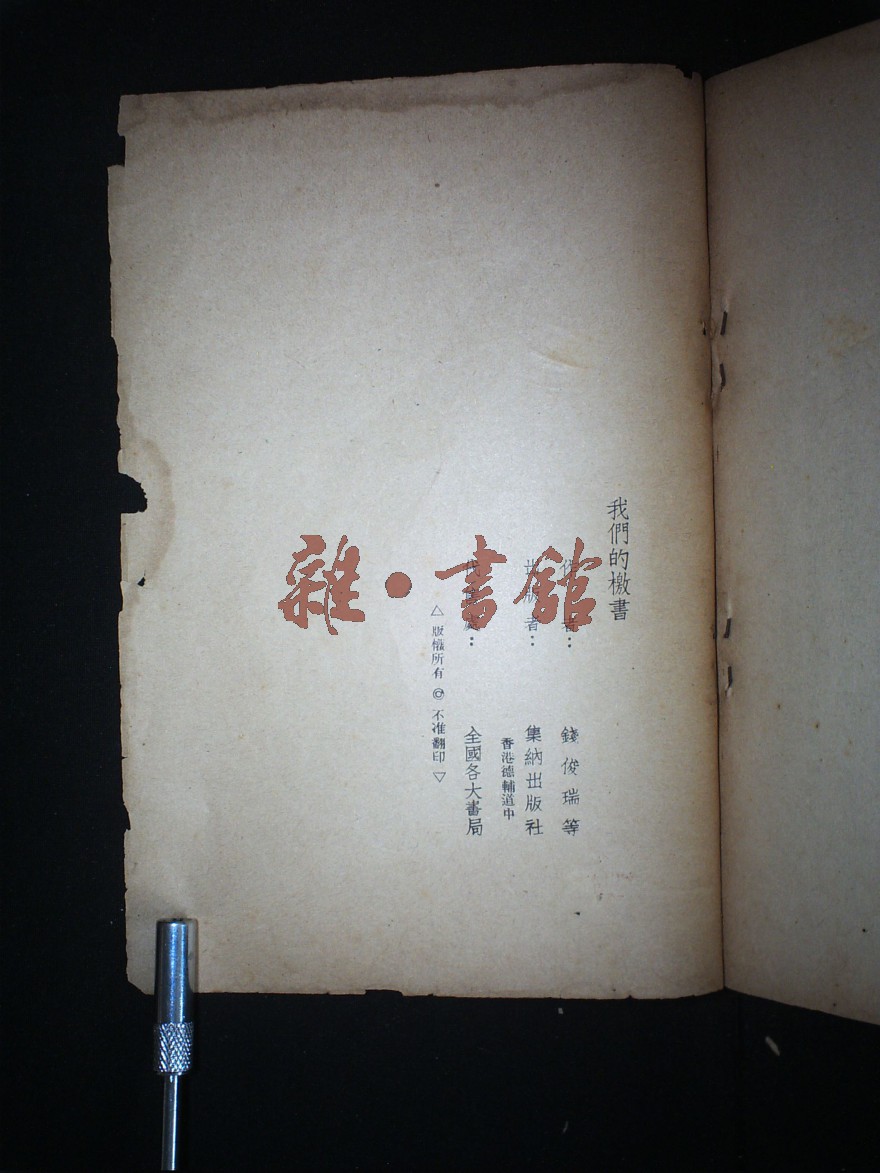 我們的檄書
作者：錢俊瑞等
出版者：集納出版社
香港德輔道中
處：全國各大書局
△版權所有◎不准翻印▽
雜·書館